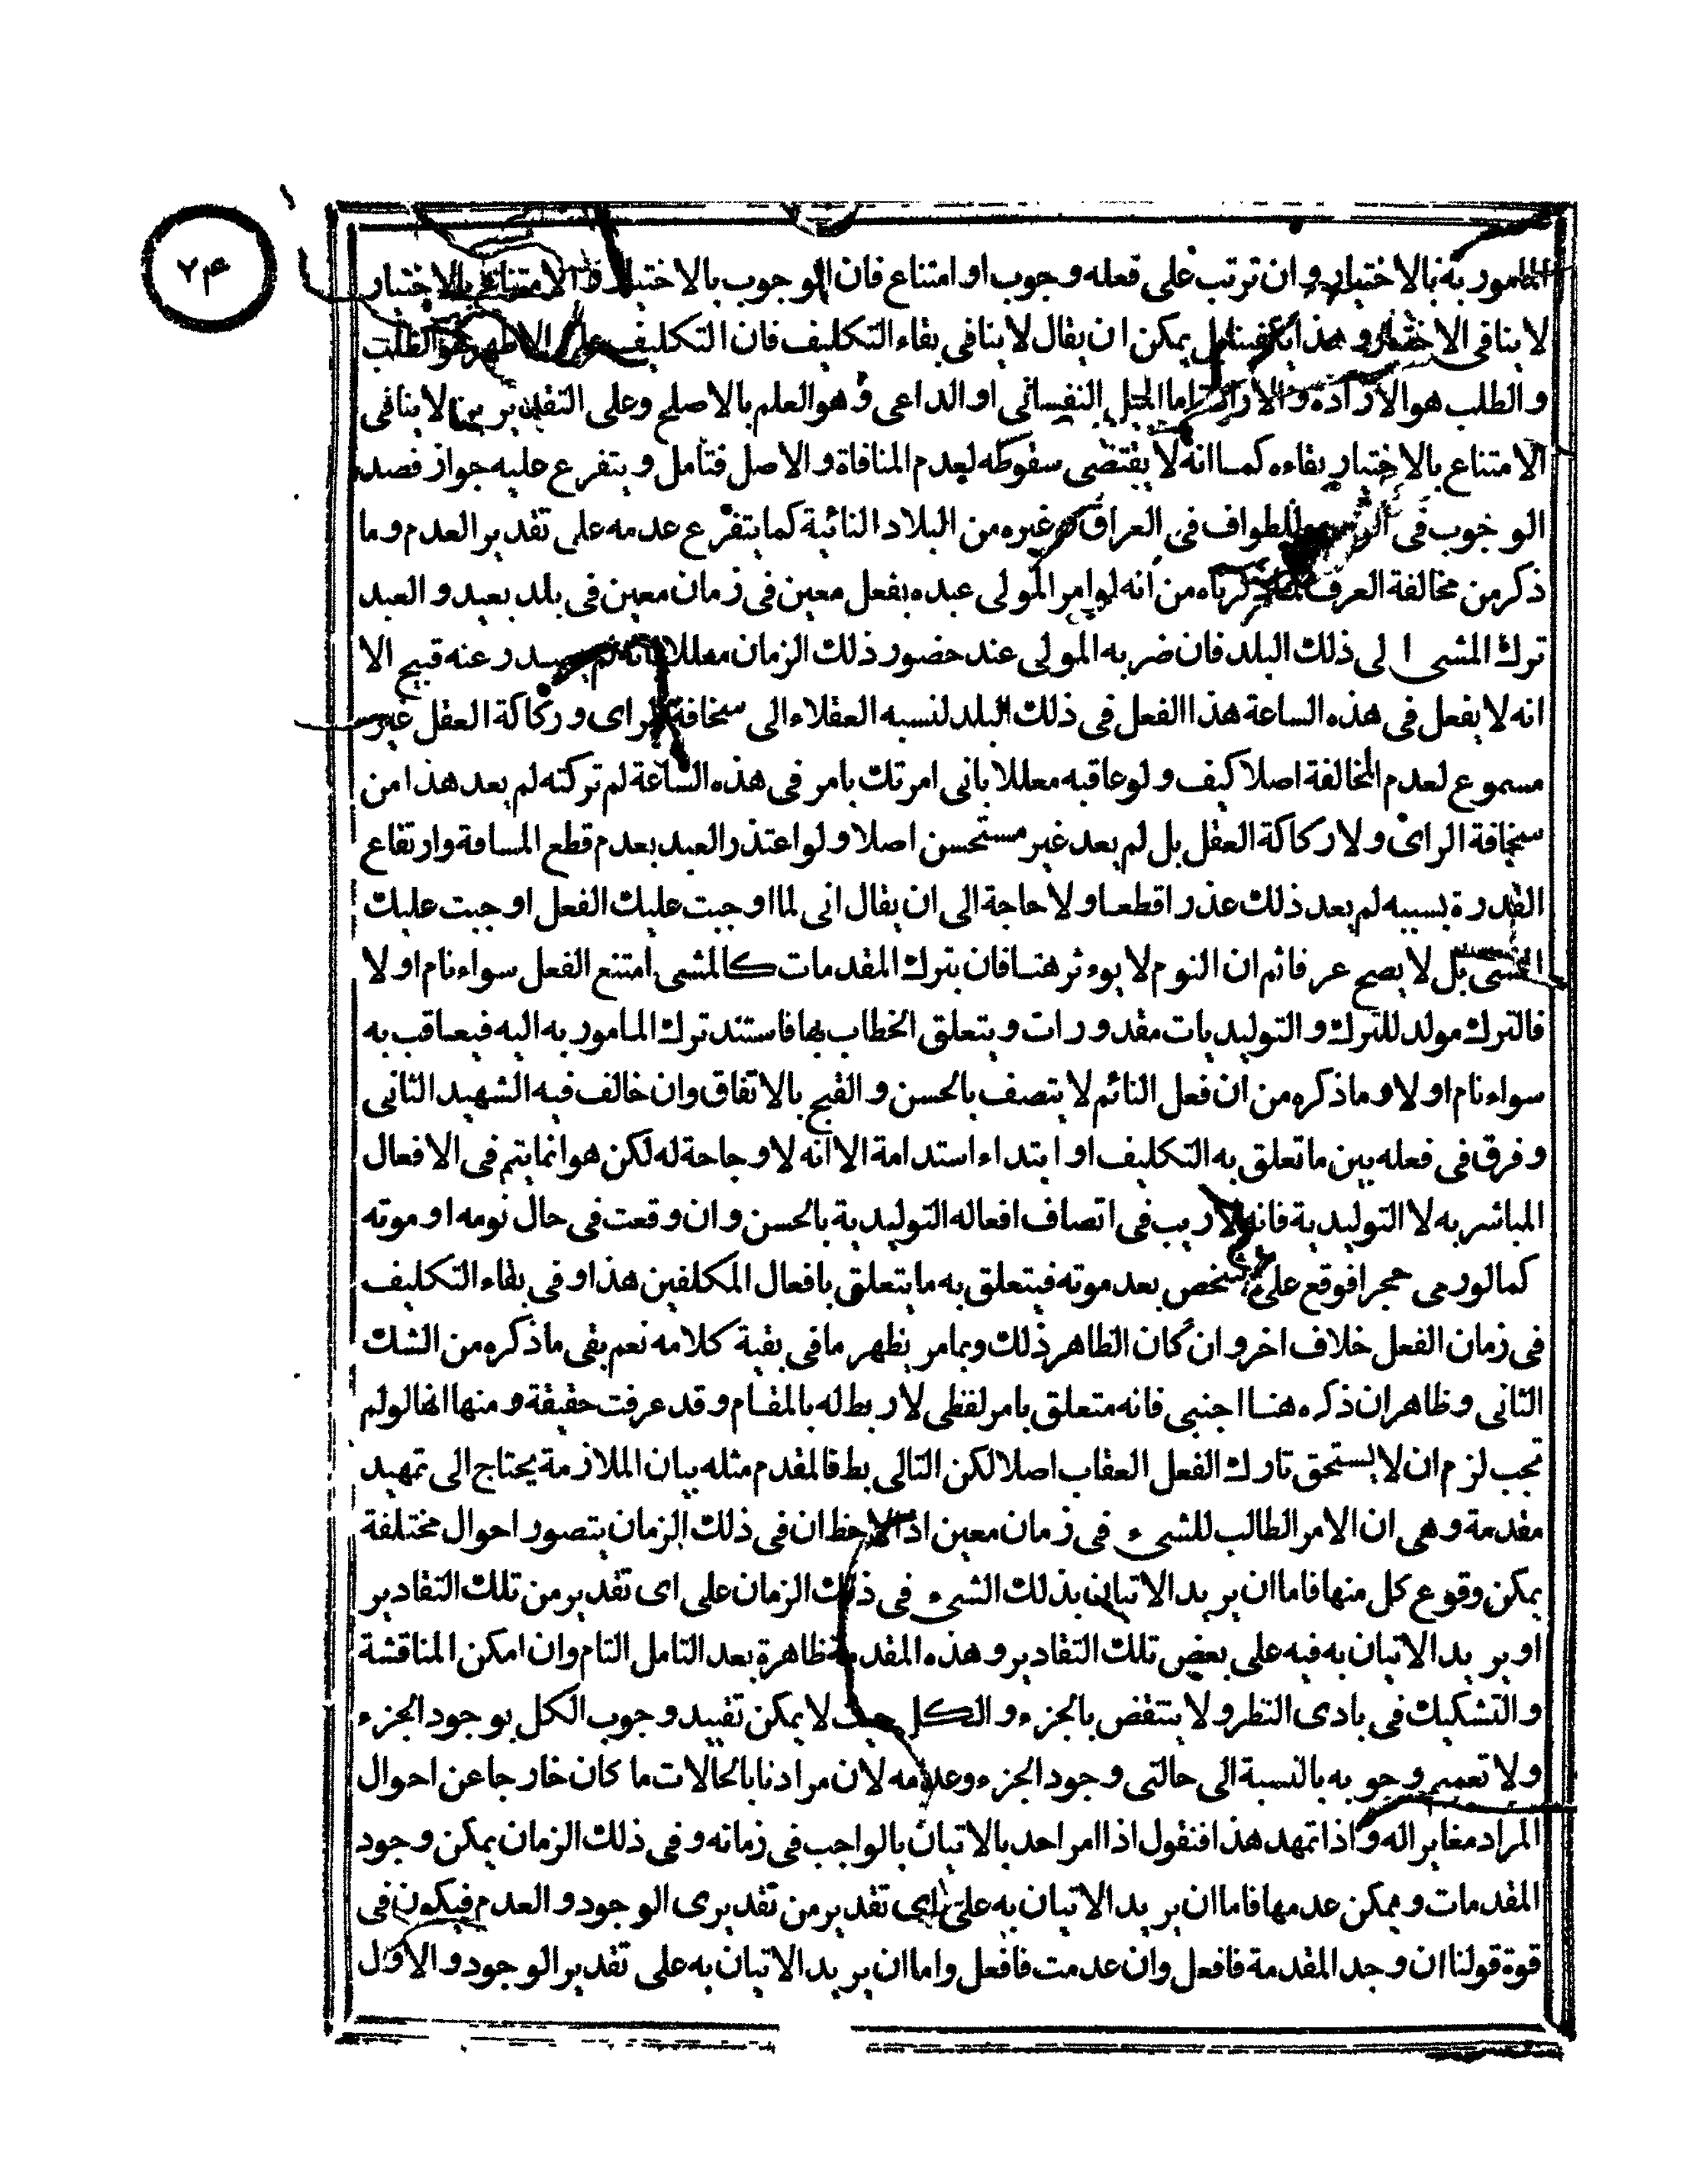 ٧۴
المامور به بالاختيار و ان ترتب على فعله وجوب او امتناع فان الوجوب بالاختيار و الامتناع بالاختيار
لا ينافى الاختيار و هذا يكفينا بل يمكن ان يقال لا ينافى بقاء التكليف فان التكليف على الاظهر هو الطلب
و الطلب هو الارادة و الارادة اما الميل النفسانى او الداعى و هو العلم بالاصلح وعلى التقديرين لا ينافى
الامتناع بالاختيار بقاءه كما انه لا يقتضى سقوطه لعدم المنافاة و الاصل فتامل و يتفرع عليه جواز قصد
الوجوب فى للطواف فى العراق و غيره من البلاد النائية كما يتفرع عدمه على تقدير العدم وما
ذكر من مخالفة العرف لما ذكرناه من انه لو امر المولى عبده بفعل معين فى زمان معين فى بلد بعيد و العبد
ترك المشى الى ذلك البلد فان ضربه المولى عند حضور ذلك الزمان معللا بانه لم يصدر عنه قبيح الا
انه لا يفعل فى هذه الساعة هذا الفعل فى ذلك البلد لنسبه العقلاء الى سخافة الراى و ركاكة العقل غير
مسموع لعدم المخالفة اصلا كيف و لو عاقبه معللا بانى امرتك بامر فى هذه الساعة لم تركته لم يعد هذا من
سخافة الراى و لا ركاكة العقل بل لم يعد غير مستحسن اصلا و لو اعتذر العبد بعدم قطع المسافة وارتفاع
القدرة بسببه لم يعد ذلك عذرا قطعا و لا حاجة الى ان يقال انى لما اوجبت عليك الفعل اوجبت عليك
المشى بل لا يصح عرفا ثم ان النوم لا يوءثر هنا فان بترك المقدمات كالمشى امتنع الفعل سواء نام او لا
فالترك مولد للترك و التوليديات مقدورات و يتعلق الخطاب بها فاستند ترك المامور به اليه فيعاقب به
سواء نام او لا و ما ذكره من ان فعل النائم لا يتصف بالحسن و القبح بالاتفاق وان خالف فيه الشهيد الثانى
و فرق فى فعله بين ما تعلق به التكليف او ابتداء استدامة الا انه لا وجاحة له لكن هو انما يتم فى الافعال
المباشر به لا التوليدية فانه لا ريب فى اتصاف افعاله التوليدية بالحسن و ان وقعت فى حال نومه او موته
كما لو رمى حجرا فوقع على شخص بعد موته فيتعلق به ما يتعلق بافعال المكلفين هذا و فى بقاء التكليف
فى زمان الفعل خلاف اخر و ان كان الظاهر ذلك وبما مر يظهر ما فى بقية كلامه نعم بقى ما ذكره من الشك
الثانى و ظاهر ان ذكره هنا اجنبى فانه متعلق بامر لفظى لا ربط له بالمقام و قد عرفت حقيقة و منها انها لو لم
تجب لزم ان لا يستحق تارك الفعل العقاب اصلا لكن التالى بط فالمقدم مثله بيان الملازمة يحتاج الى تمهيد
مقدمة و هى ان الامر الطالب للشىء فى زمان معين اذا لاحظ ان فى ذلك الزمان يتصور احوال مختلفة
يمكن وقوع كل منها فاما ان يريد الاتيان بذلك الشىء فى ذلك الزمان على اى تقدير من تلك التقادير
او يريد الاتيان به فيه على بعض تلك التقادير و هذه المقدمة ظاهرة بعد التامل التام وان امكن المناقشة
و التشكيك فى بادى النظر و لا ينتقض بالجزء و الكل حيث لا يمكن تقييد وجوب الكل بوجود الجزء
و لا تعميم وجوبه بالنسبة الى حالتى وجود الجزء وعدمه لان مرادنا بالحالات ما كان خارجا عن احوال
المراد مغايرا له و اذا تمهد هذا فنقول اذا امر احد بالاتيان بالواجب فى زمانه و فى ذلك الزمان يمكن وجود
المقدمات و يمكن عدمها فاما ان يريد الاتيان به على اى تقدير من تقديرى الوجود و العدم فيكون فى
قوة قولنا ان وجد المقدمة فافعل وان عدمت فافعل واما ان يريد الاتيان به على تقدير الوجود و الاول